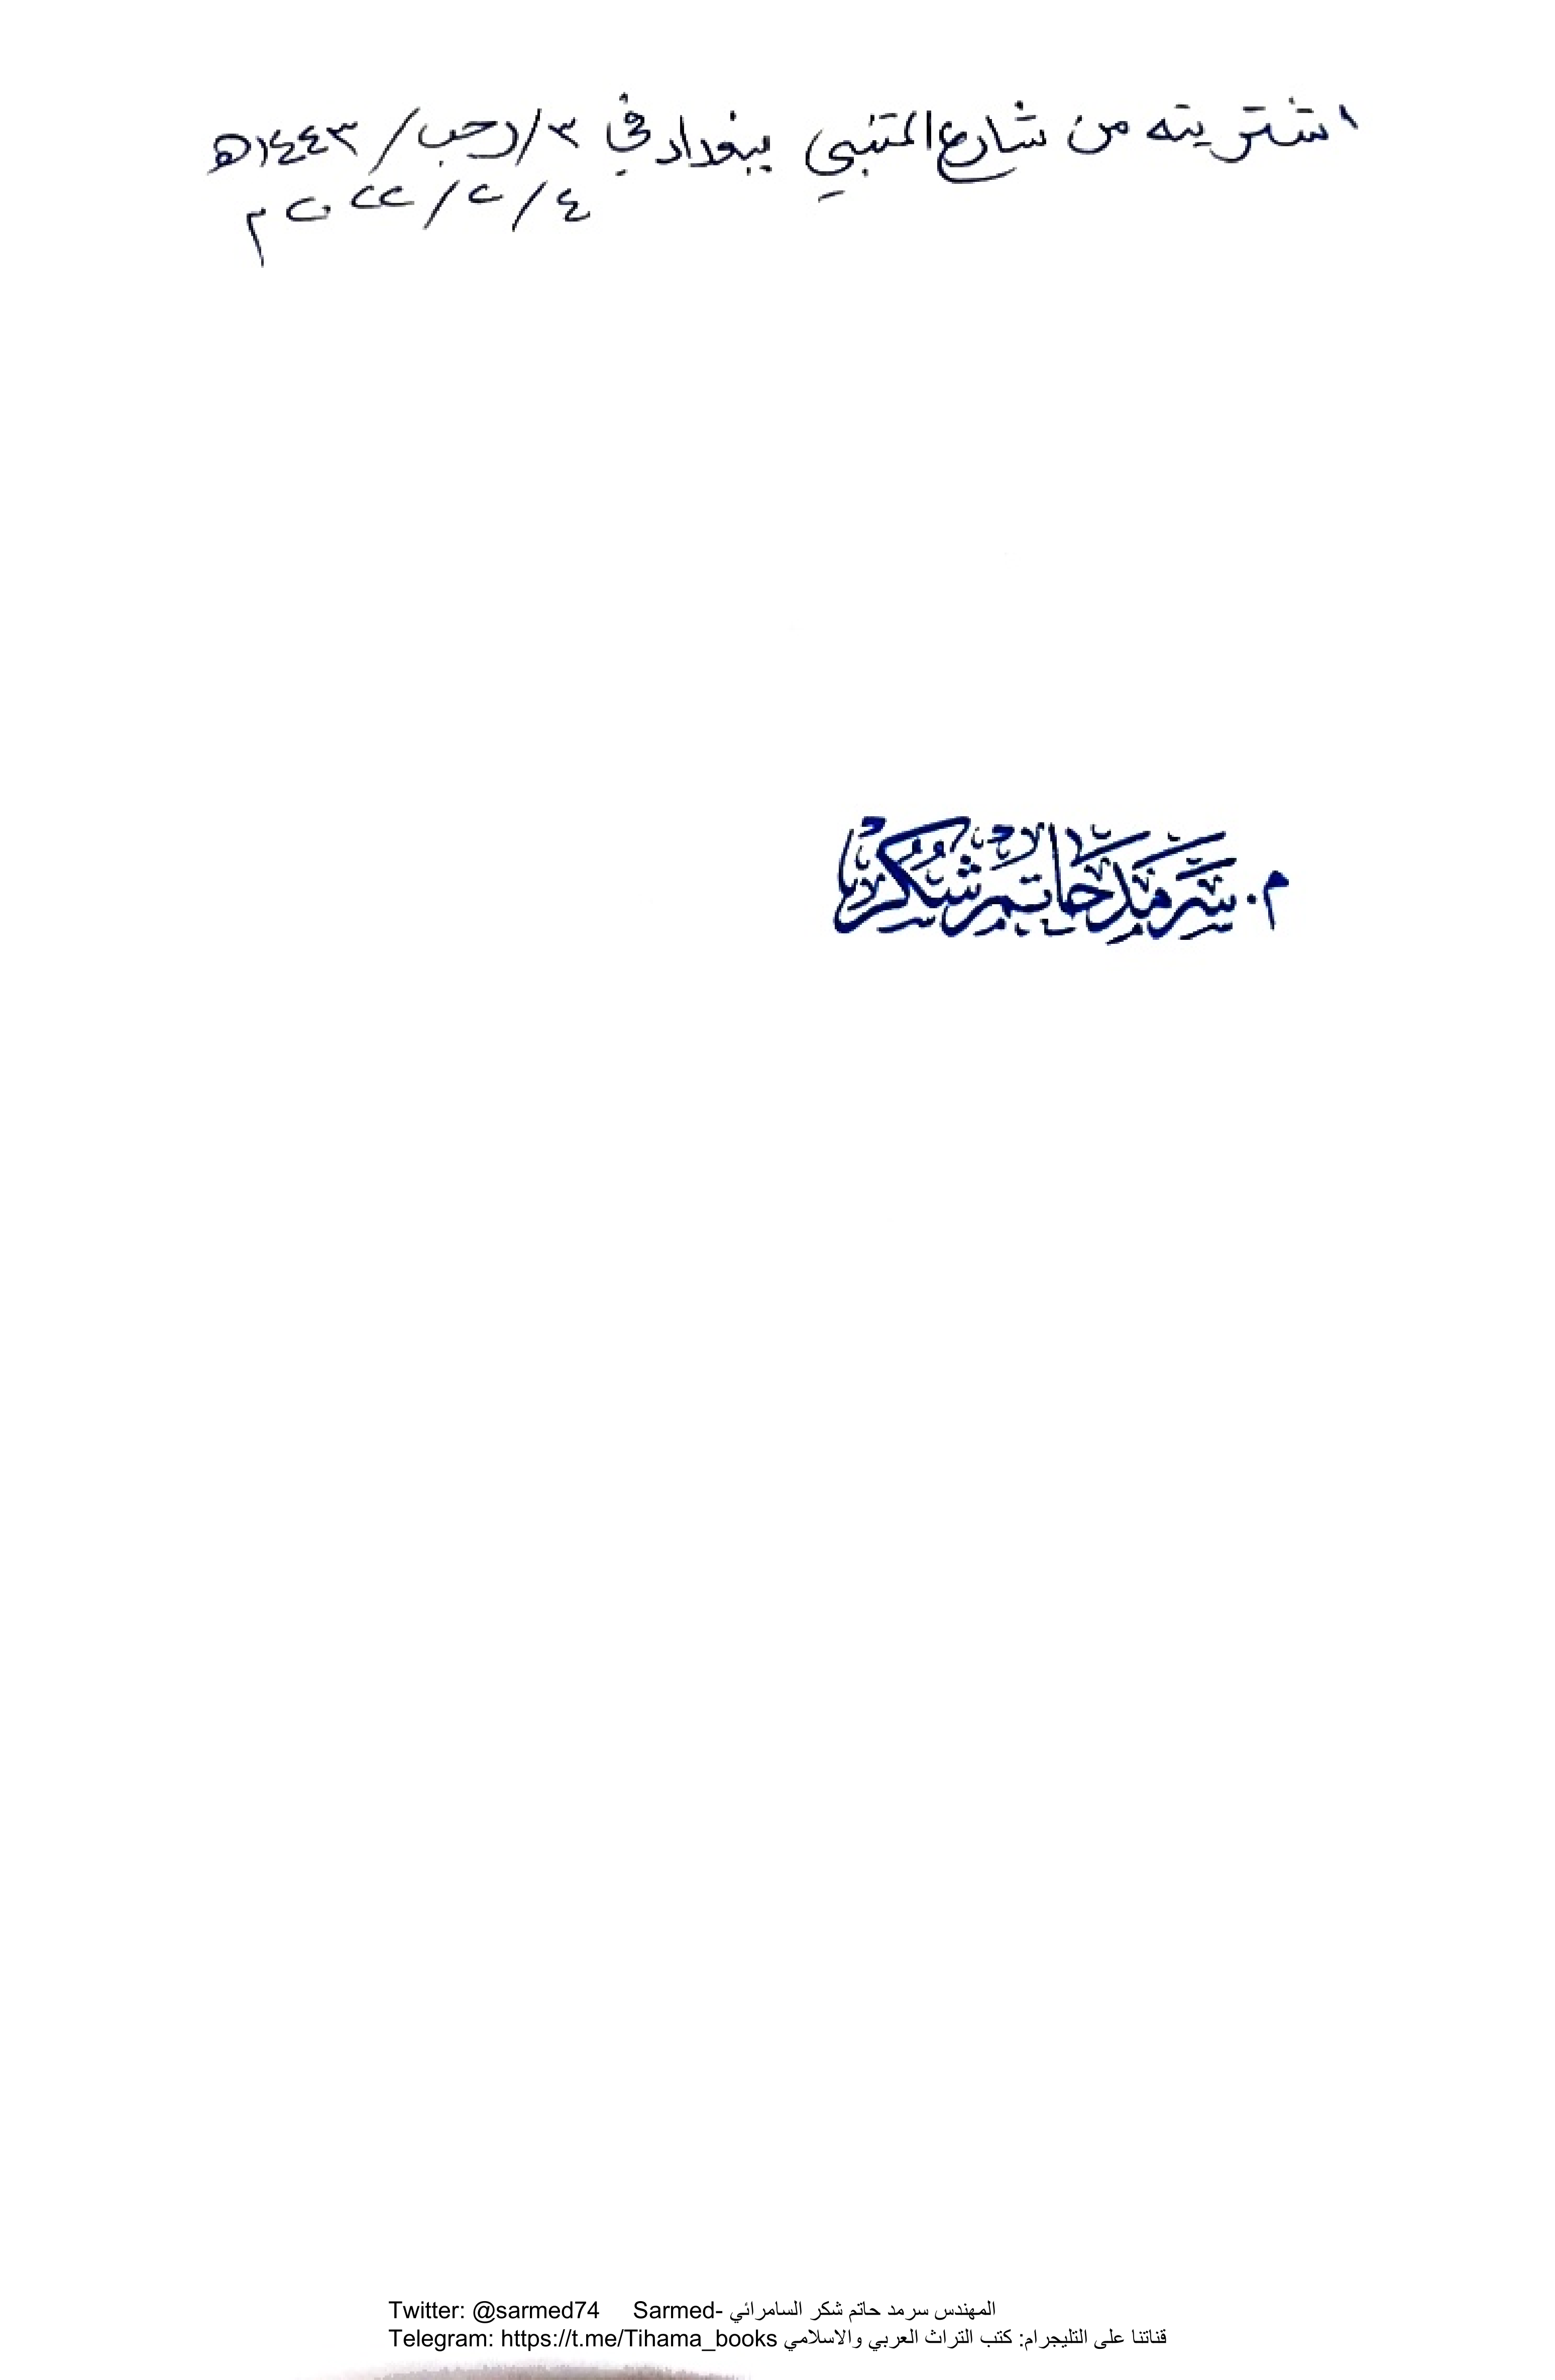 اشتريته من شارع المتنبي ببغداد في ٣/رجب/١٤٤٣ه
٤/٢/٢٠٢٢م
م. سرمد حاتم شكر
Twitter: @sarmed74 Sarmed- المهندس سرمد حاتم شكر السامرائي
Telegram: https://t.me/Tihama_books قناتنا على التليجرام: كتب التراث العربي والاسلامي